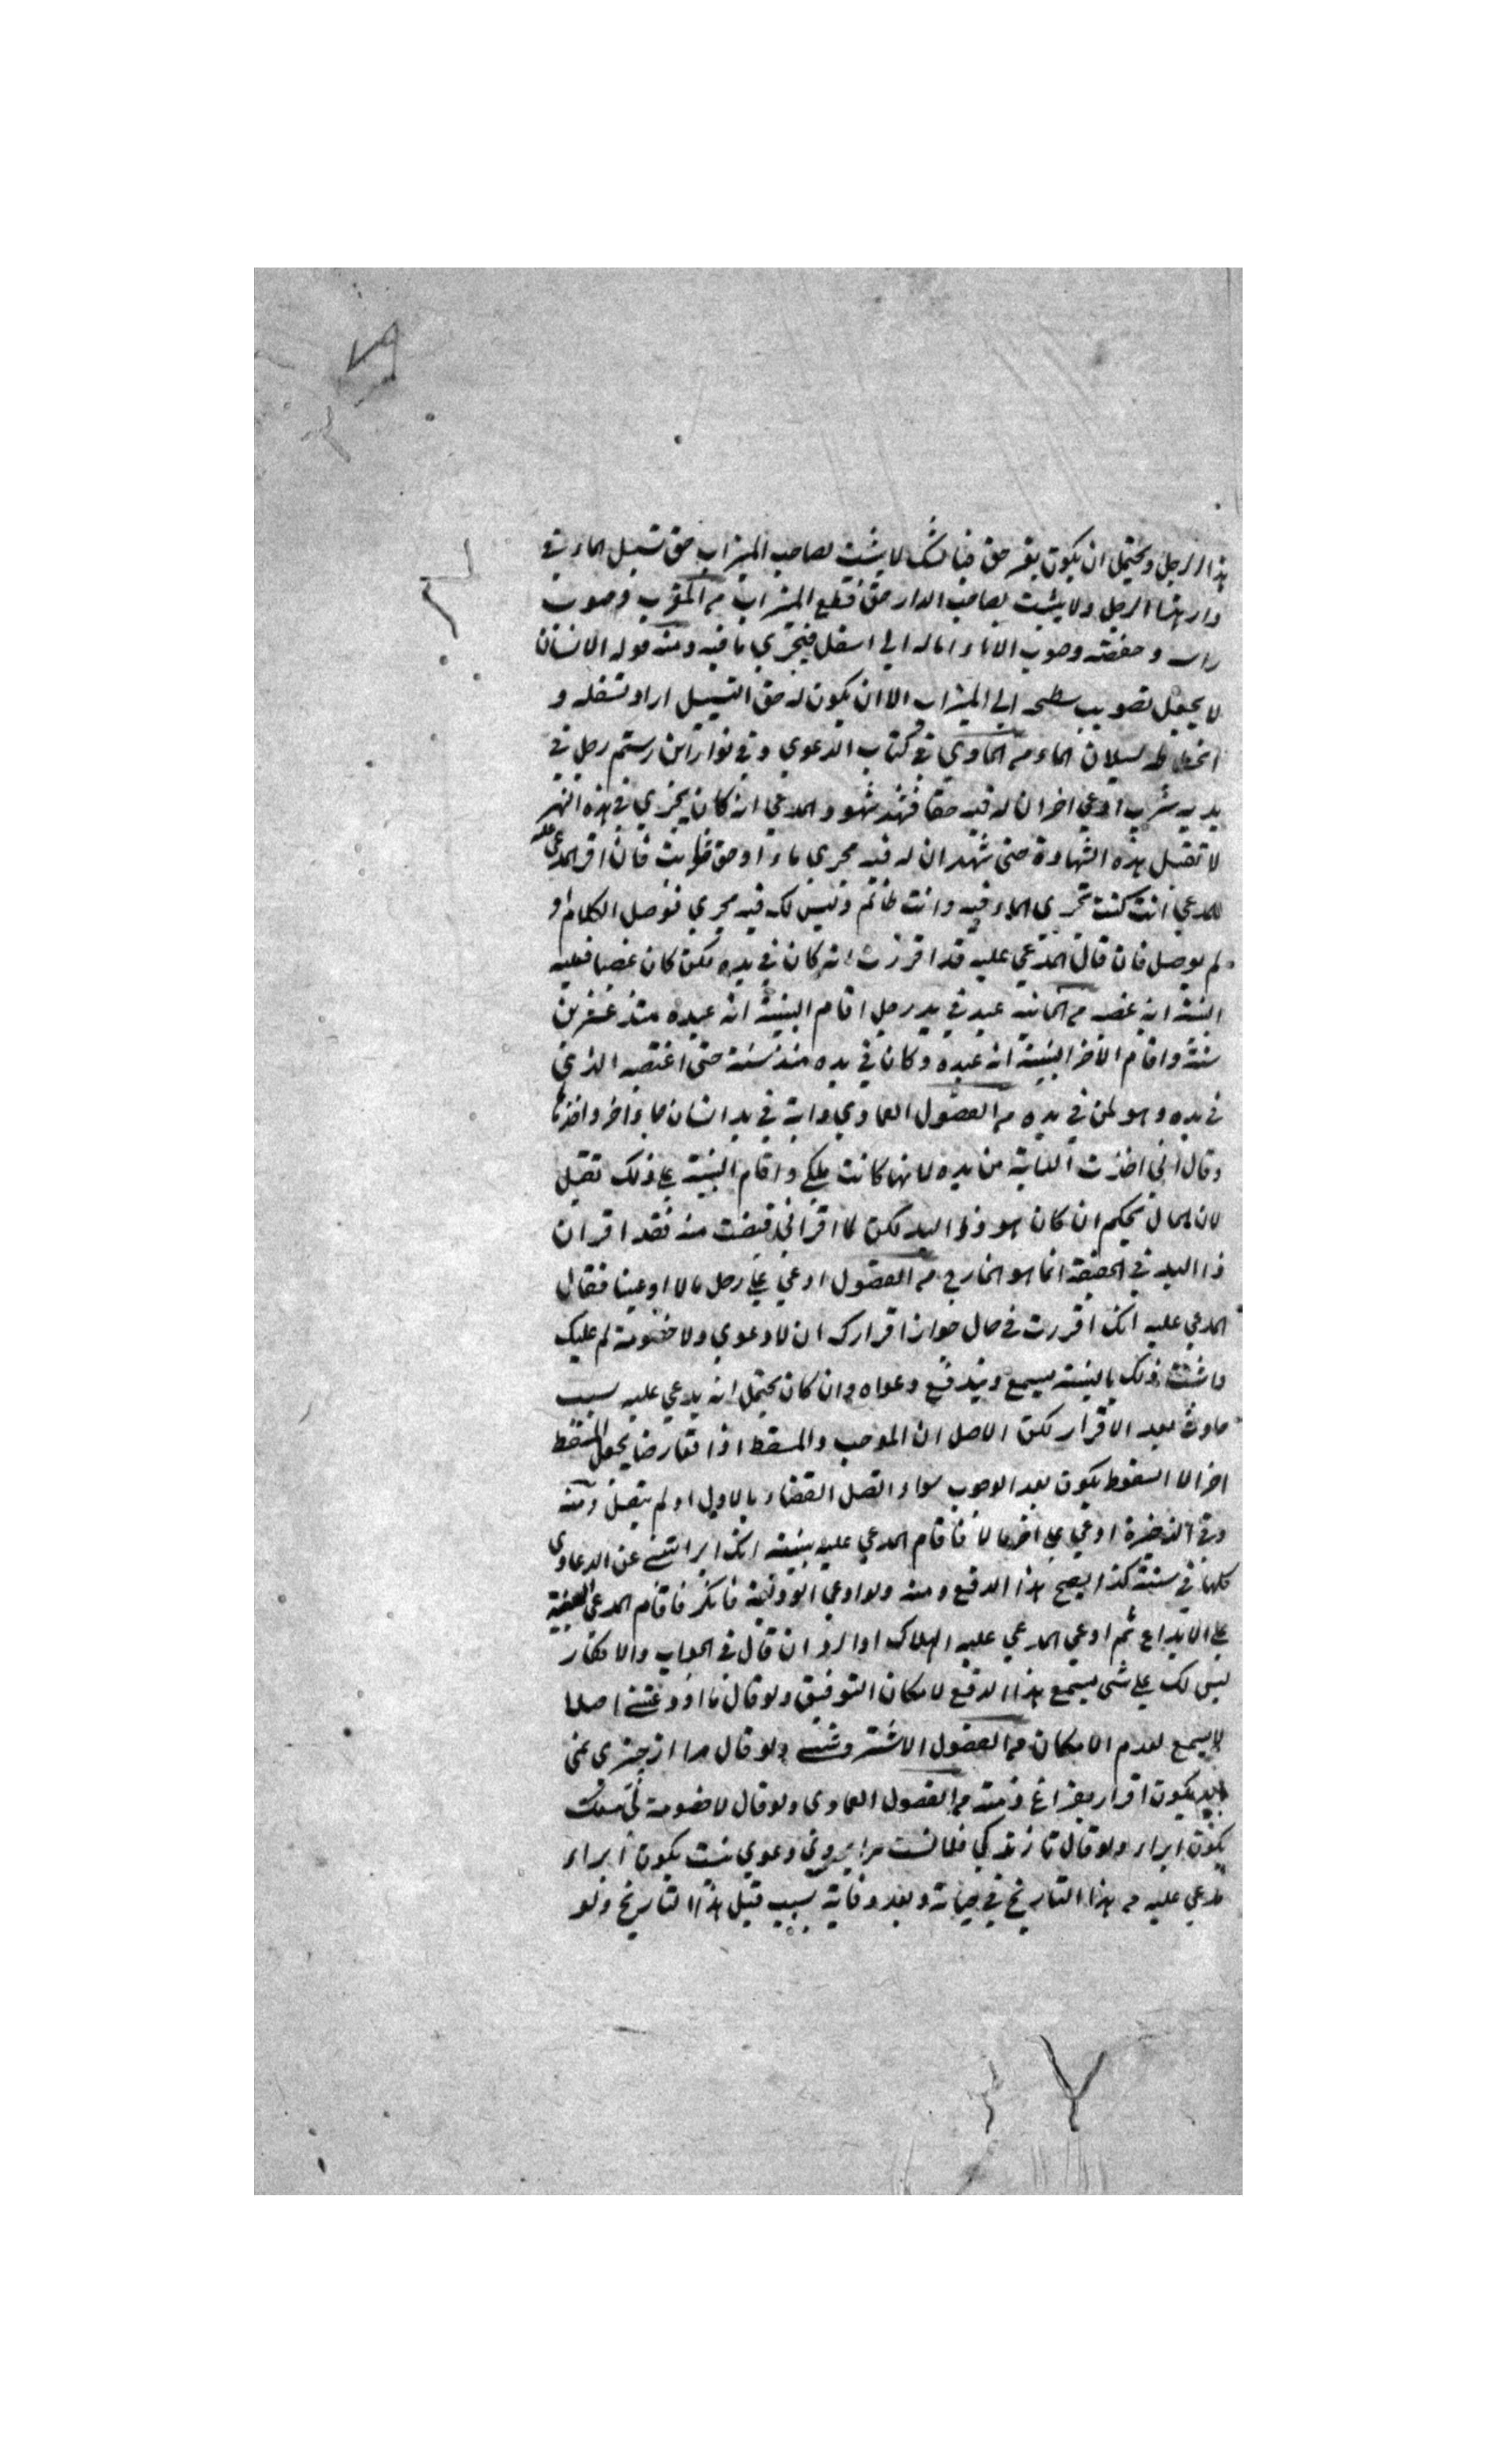 هذا الرجل ويحتمل ان يكون بغير حق فبالشك لا يثبت لصاحب الميزاب حق تسييل الماء في
دار هذا الرجل ولا يثبت لصاحب الدار حق قطع الميزاب من المغرب وصوب
راسه وخفضه وصوب الاناء اماله الي اسفل فيجري ما فيه ومنه قوله الانسان
لا يجعل تصويب سطحه الي الميزاب الا ان يكون له حق التسييل اراد تسفله و
انحطاطه لسيلان الماء من الحاوي في كتاب الدعوي وفي نوادر ابن رستم رجل في
يديه شرب ادعي اخر ان له فيه حقا فشهد شهود المدعي انه كان يجري في هذه النهر
لا تقبل هذه الشهادة حتى شهد ان له فيه مجري ماء او حق ثابت فان اقر المدعي عليه
للمدعي انت كنت تجري الماء فيه وانت ظالم وليس لك فيه مجري فوصل الكلام او
لم يوصل فان قال المدعي عليه قد اقررت انه كان في يده لكن كان غصبا فعليه
البينة انه غصب من الخانية عبد في يد رجل اقام البينة انه عبده منذ عشرين
سنة واقام الاخر البينة انه عبده وكان في يده منذ سنة حتى اغتصبه الذي
في يده وهو لمن في يده من الفصول العمادي دابة في يد انسان جاء اخر واخذها
وقال اني اخذت الدابة من يده لانها كانت ملكي واقام البينة علي ذلك تقبل
لان الحال يحكم ان كان هو ذو اليد لكن لما اقر اني قبضت منه فقد اقر ان
ذا اليد في الحقيقة انما هو الخارج من الفصول ادعي علي رجل مالا او عينا فقال
المدعي عليه انك اقررت في حال جواز اقرارك ان لا دعوي ولا خصومة لي عليك
واثبت ذلك بالبينة يسمع ويندفع دعواه وان كان يحتمل انه يدعي عليه بسبب
حادث بعد الاقرار لكن الاصل ان الموجب والمسقط اذا تعارضا يجعل المسقط
اخرا لان السقوط يكون بعد الوجوب سواء اتصل القضاء بالاول او لم يتصل ومنه
وفي الذخيرة ادعي علي اخر مالا فاقام المدعي عليه بينة انك ابراتني عن الدعاوي
كلها في سنة كذا يصح هذا الدفع ومنه ولو ادعي الوديعة فانكر فاقام المدعي البينة
علي الايداع ثم ادعي المدعي عليه الهلاك او الرد ان قال في الجواب والانكار
ليس لك علي شي يسمع هذا الدفع لامكان التوفيق ولو قال ما اودعتني اصلا
لا يسمع لعدم الامكان من الفصول الاشتروشني ولو قال مرا از چيزي نمي
يكون اقرار بفراغ ذمته من الفصول العمادي ولو قال لا خصومة لي
يكون ابراء ولو قال تا زندكي فلانست مرا بروي دعوي نيست يكون ابراء
مدعي عليه من هذا التاريخ في حياته وبعد وفاته بسبب قبل هذا التاريخ ولو